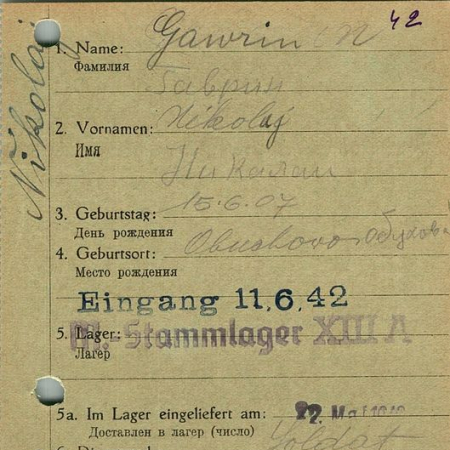 42
Nikolaj
1. Name: Gawrin
Фамилия
Гаврин
2. Vornamen: Nikolaj
Имя
Николаи
3. Geburtstag: 15.6.07
День рождения
4. Geburtsort: Obuchovo
Место рождения
Eingang 11.6.42
5. Lager: M.-Stammlager XIII A
Лагер
5a. Im Lager eingeliefert am: 22. Mai 1942
Доставлен в лагер (число)
Soldat